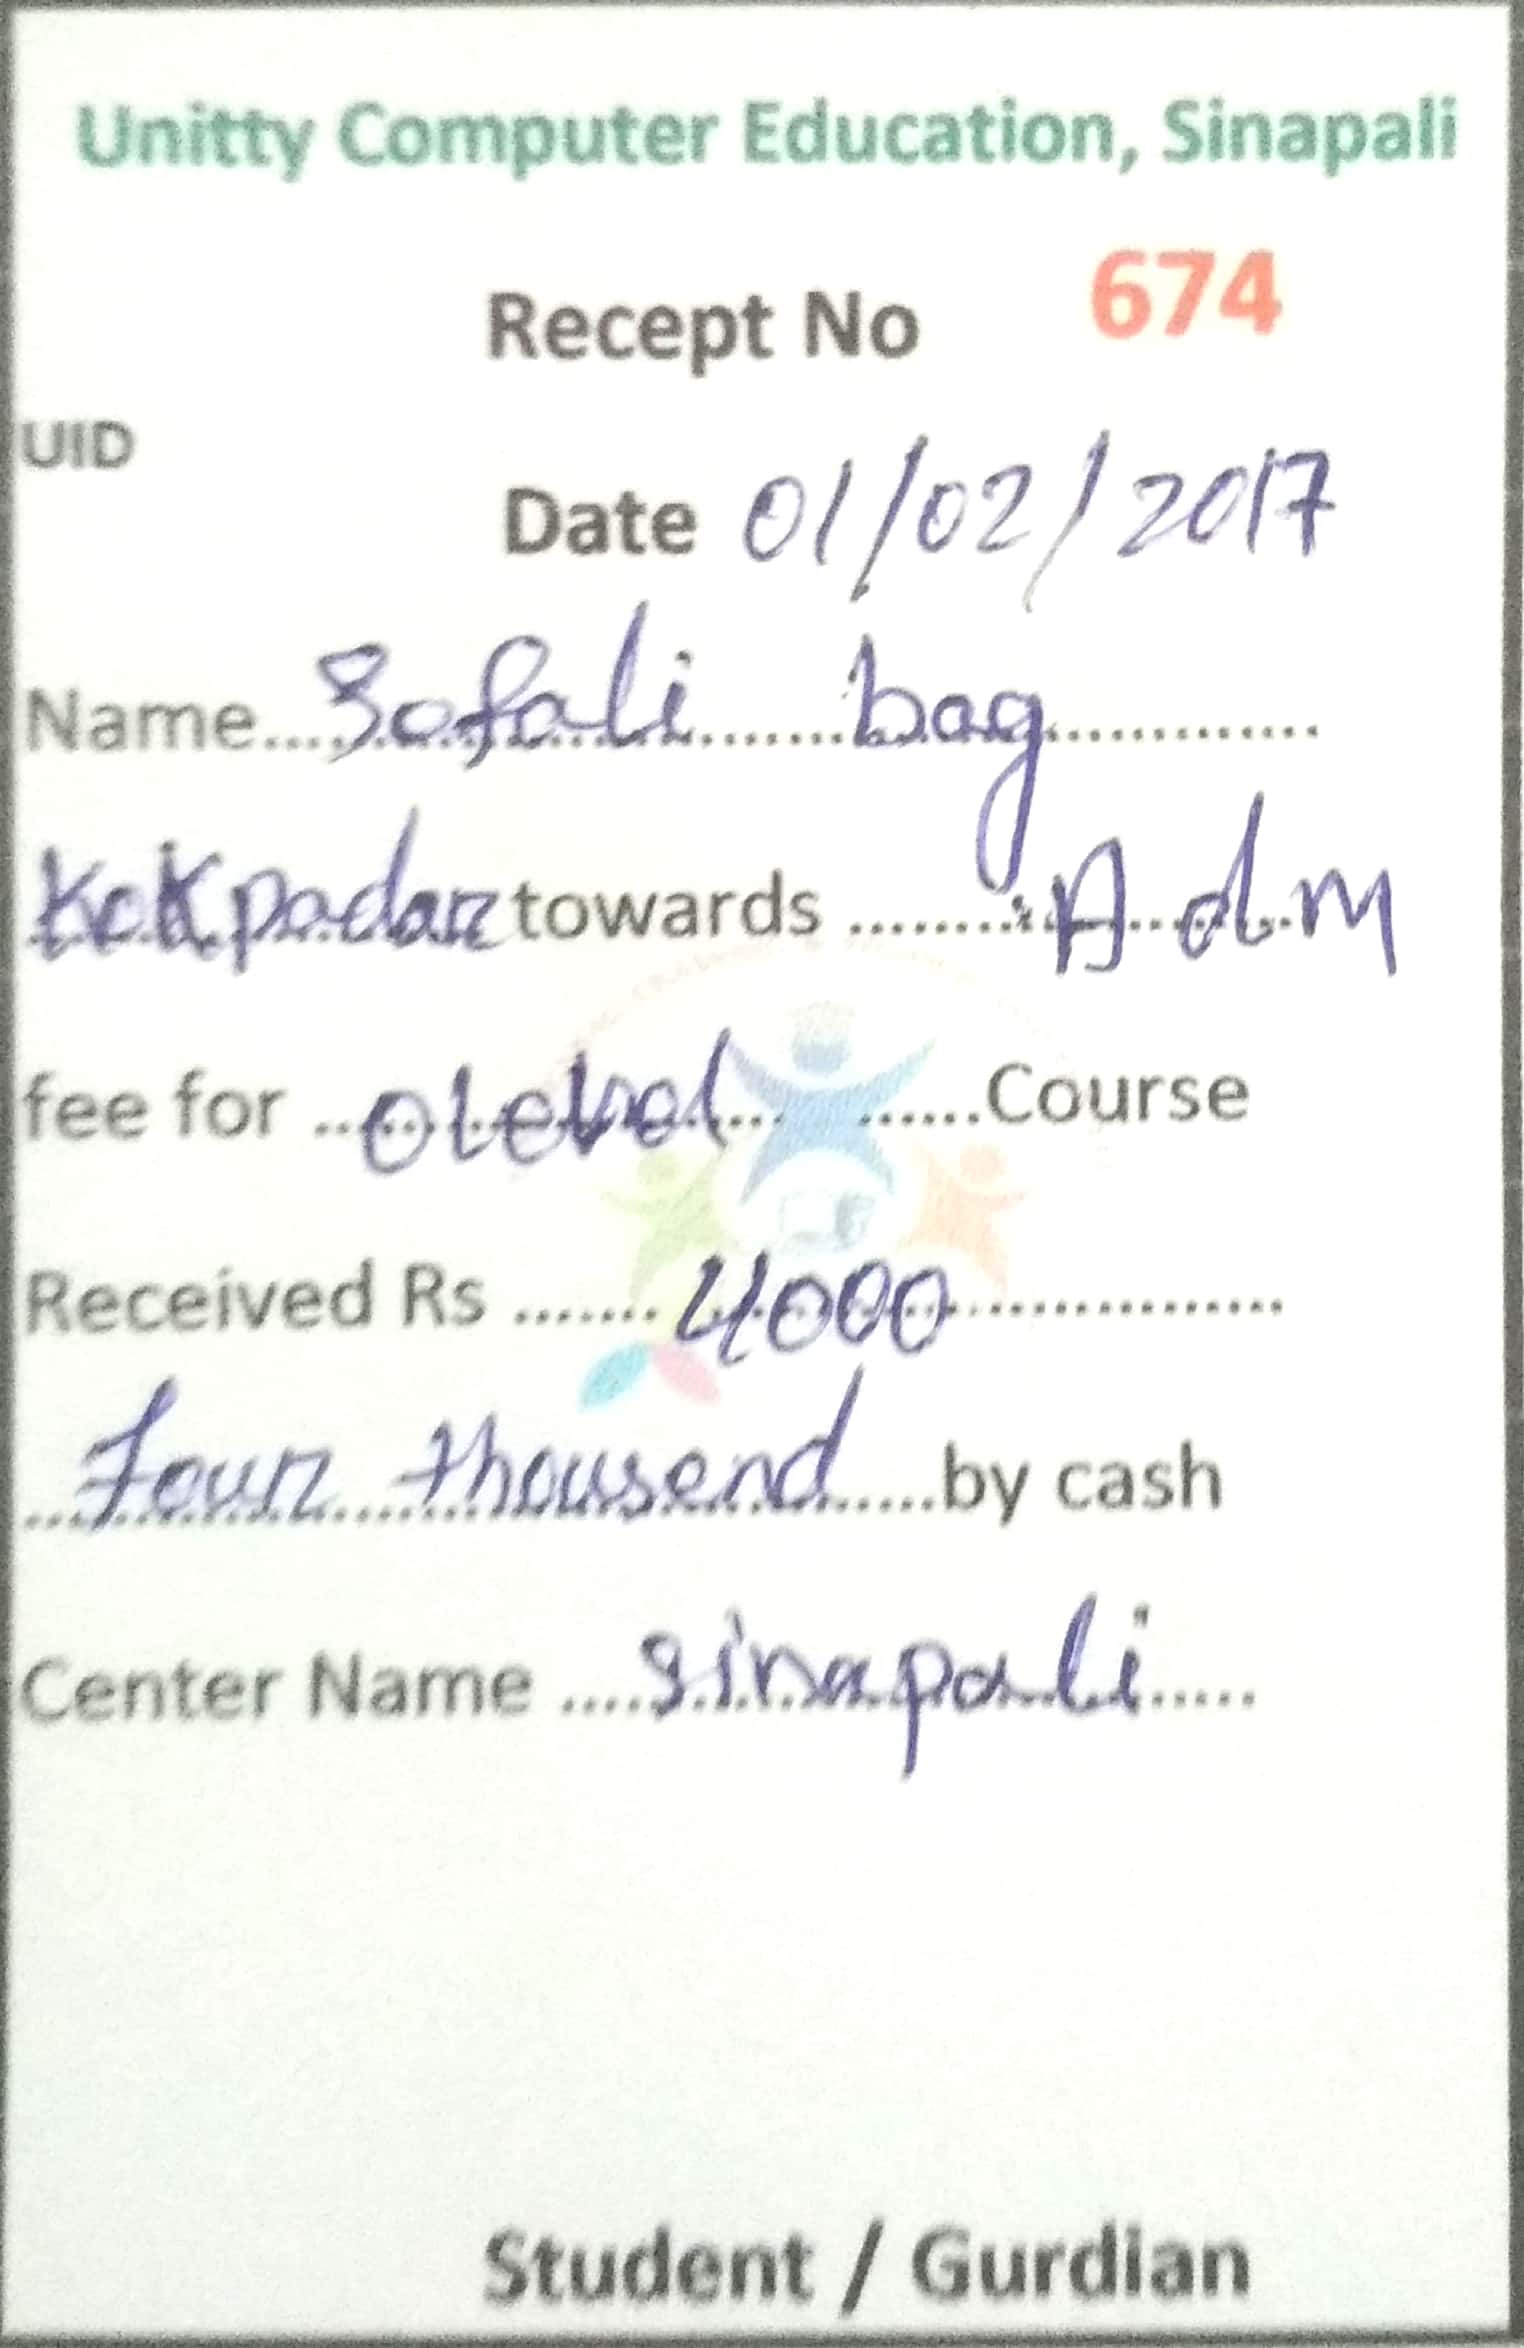 Unitty Computer Education, Sinapali
Recept No 674
UID
Date 01/02/2017
Name.... Sofali bag ............
KcKpadar towards ......... Adm
fee for ... O level ... ......Course
Received Rs ....... 4000 .................
Four thousend ......by cash
Center Name .... Sinapali .....
Student / Gurdian